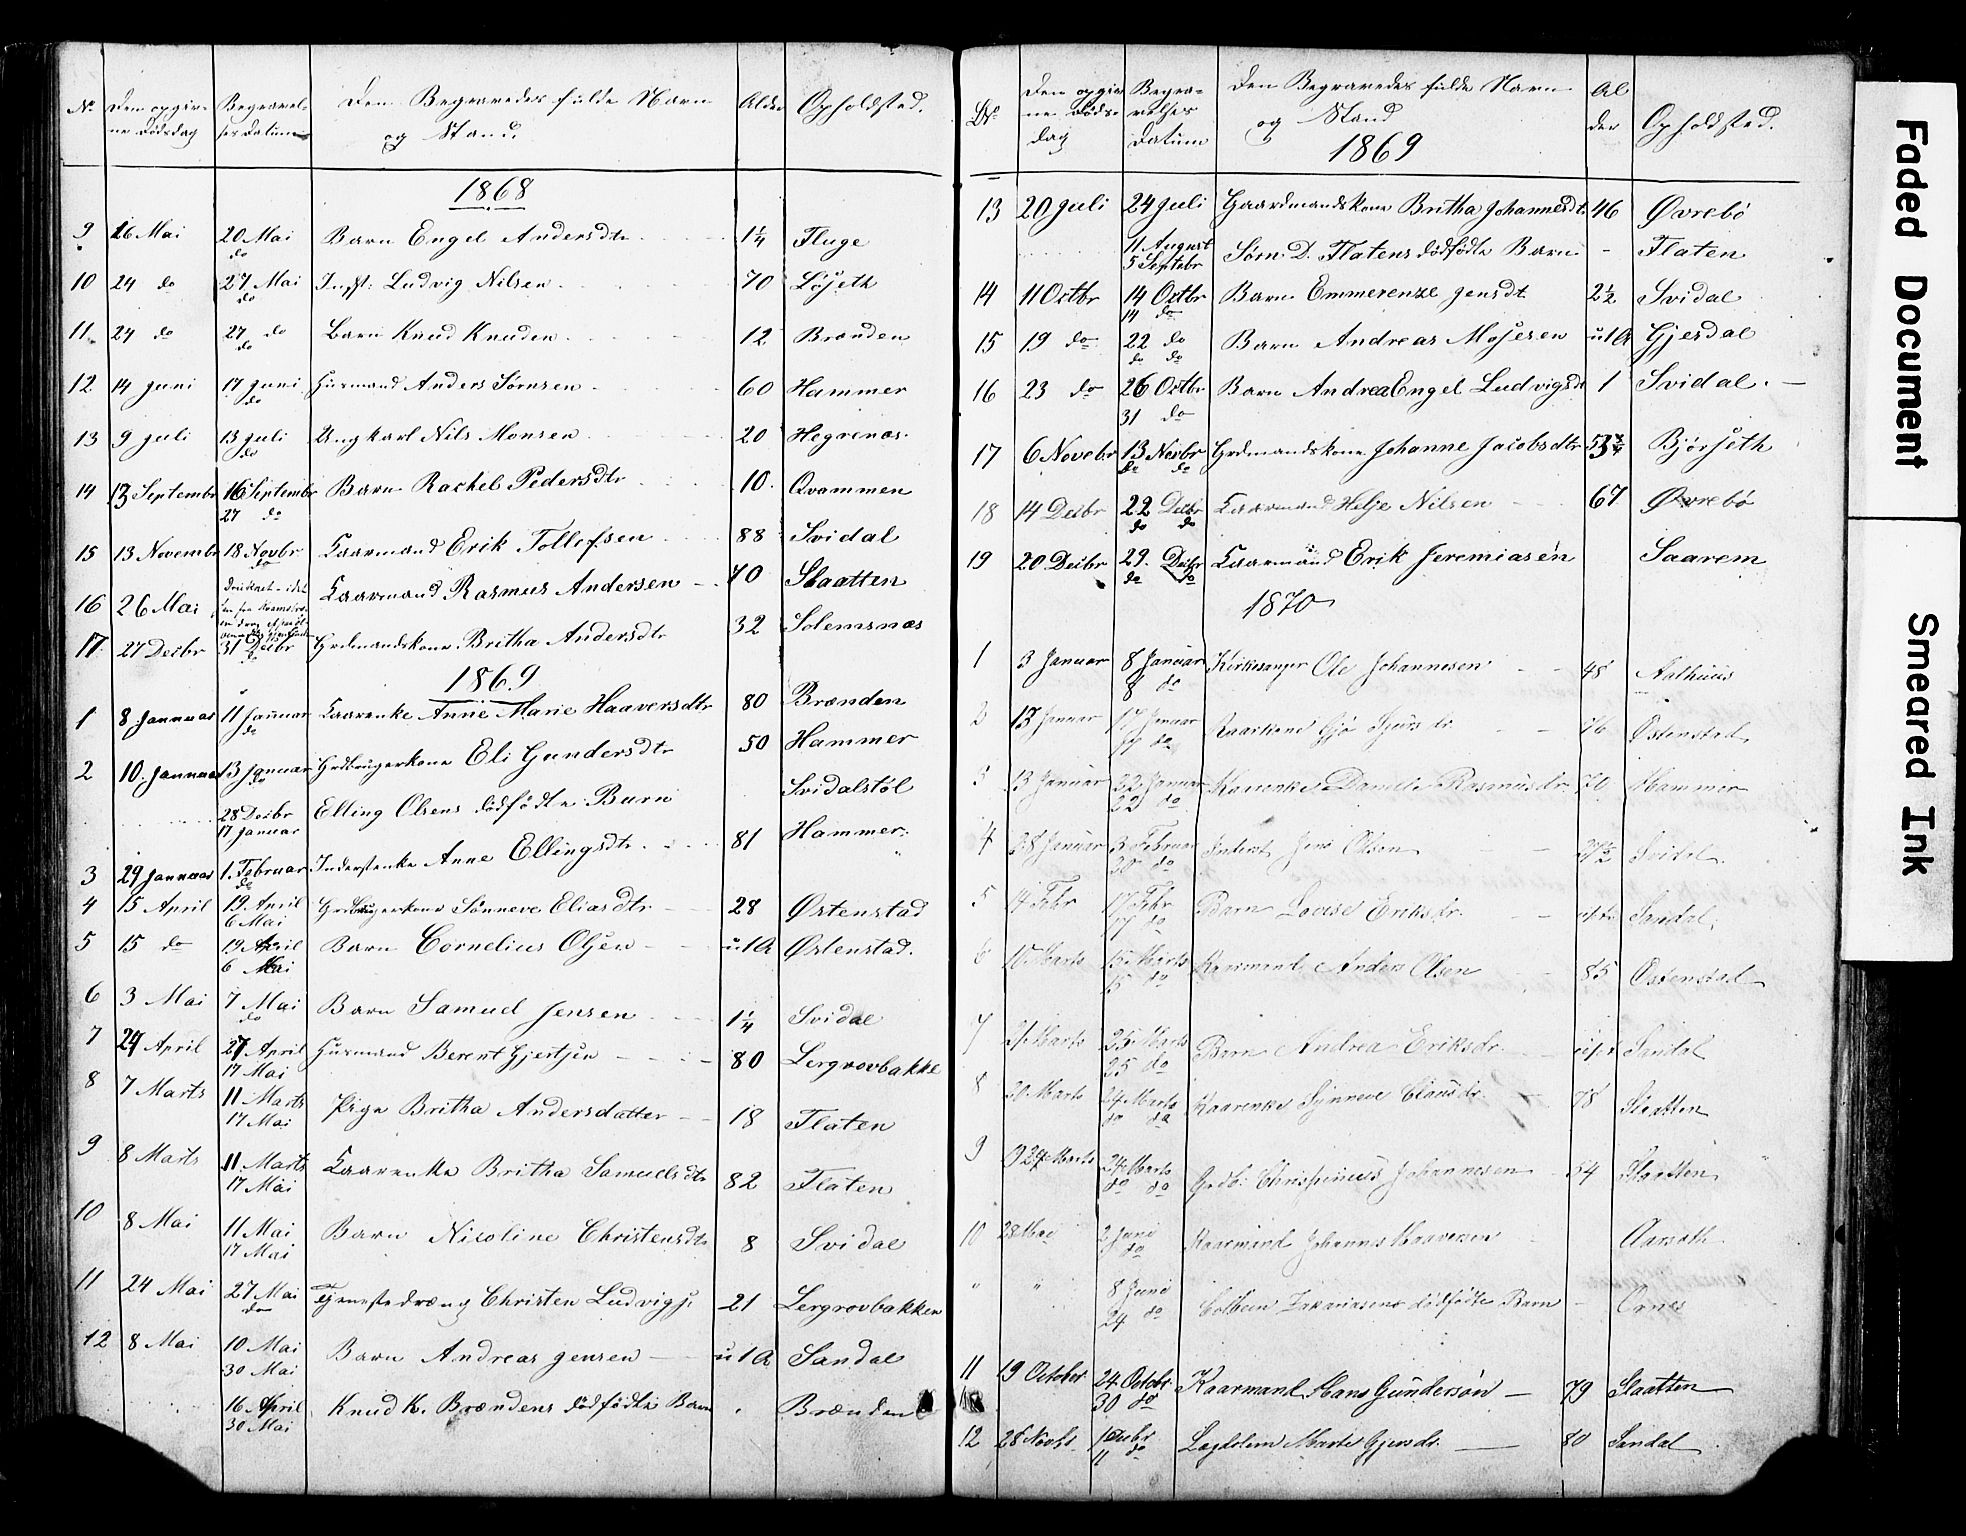 No Den opgiv- Begravel- Den Begravedes fulde Navn Alder Opholdsted.
ne Dødsdag ses Datum og Stand.
1868
9 16 Mai 20 Mai Barn Engel Andersdtr 1¼ Fluge
do
10 24 do 27 Mai Inst: Ludvig Nilsen 70 Løseth
do
11. 24 do 27 do Barn Knud Knuden 12 Brænden
do
12 14 Juni 17 Juni Husmand Anders Sørnsen 60 Hammer
do
13 9 Juli 13 Juli Ungkarl Nils Monsen 20 Hegrenæs.
do
14 13 Septembr 16 Septembr Barn Rachel Pedersdtr 10. Qvammen
27 do
15 13 Novembr 18 Novbr Kaarmand Erik Tollefsen 88 Svidal
do
16 26 Mai Kaarmand Rasmus Andersen 70 Slaatten
17. 27 Decbr 31 Decbr Grdmandskone Britha Andersdtr 32 Solemsnæs
do
1869
1 8 Januar 11 Januar Kaarenke Anne Marie Haaversdtr 80 Brænden
do
2 10. Januar 13 Januar Grdbrugerkone Eli Gundersdtr 50 Hammer
do
28 Decbr Elling Olsens dødfødte Barn Svidalstøl
17 Januar
3 29 Januar 1. Februar Inderstenke Anne Ellingsdtr 81 Hammer.
do
4 15 April 19. April Grdbrugerkone Sønneve Eliasdtr 28 Østenstad
6 Mai
5 15 do 19 April Barn Cornelius Olsen u 1 A Østenstad.
6 Mai
6 3 Mai 7 Mai Barn Samuel Jensen 1¼ Svidal
do
7 24 April 27 April Husmand Berent Gjertsen 80 Lergrovbakke
17 Mai
8 7 Marts 11 Marts Pige Britha Andersdatter 18 Flaten
17 Mai
9 8 Marts 11 Marts Kaarenke Britha Samuelsdtr 82 Flaten
17 Mai
10 8 Mai 11 Mai Barn Nicoline Christensdtr 8 Svidal
17 Mai
11 24 Mai 27 Mai Tjenestedræng Christen Ludvigs. 21 Lergrovbakken
do
12 8 Mai 10 Mai Barn Andreas Jensen u 1 A Sandal
30 Mai
16 April Knud K. Brændens dødfødte Barn Brænden
30 Mai
No Den opgiv Begra- Den Begravedes fulde Navn Al
ne Døds- velses og Stand der Opholdsted.
dag Datum 1869
13 20 Juli 24 Juli Gaardmandskone Britha Johannesdt. 46 Øvrebø
11 August Sørn D. Flatens dødfødte Barn - Flaten
5 Septebr
14 11 Octbr 14 Octbr Barn Emmerenze Jensdt 2½ Svidal
14 do
15 19 do 22 do Barn Andreas Mosesen u 1 A Gjesdal
do do
16 23 do 26 Octbr Barn Andrea Engel Ludvigsdt 1 Svidal.
31 do
17 6 Novebr 13 Novbr Grdmandskone Johanne Jacobsdtr 53¾ Bjørseth
do do
18 14 Decbr 22 Decbr Kaarmand Helje Nilsen 67 Øvrebø
do do
19 20 Decbr 29. Decbr Kaarmand Erik Jeremiasen Saarem
do do
1870
1 3 Januar 8 Januar Kirkesanger Ole Johannesen 48 Aalhuus
8 do
2 13 Januar 17 Januar 76 Østenstad
17 do
3 13 Januar 22 Januar Danele Rasmusdr 70 Hammer
22 do
4 28 Januar 3 Februar Inderst Jens Olsen 27½ Svidal.
30 do
5 14 Febr 17 Febr Barn Lovise Eriksdr. Sandal.
17 do
6 10 Marts 15 Marts Kaarmand Anders Olsen 85 Østenstad
15 do
7 21 Marts 25 Marts Barn Andrea Eriksdr. Sandal
25 do
8 20 Marts 24 Marts Kaarenke Synneve Clausdr. 78 Slaatten
do do
9 24 Marts Grdb: Chrispinus Johannesen 54 Slaatten
do do
10 28 Mai 2 Juni Kaarmand Johannes Haaversen Aarseth
do
" " 8 Juni Colbein Zakariasens dødfødte Barn - Ornes
24 do
11 19 October 24 Octobr. Kaarmand Hans Gundersøn 79 Slaatten
30 do
12 28 Novbr 1 Decbr Lægdslem Marte Gjersdr. 80 Sandal
11 do
Faded Document
Smeared Ink